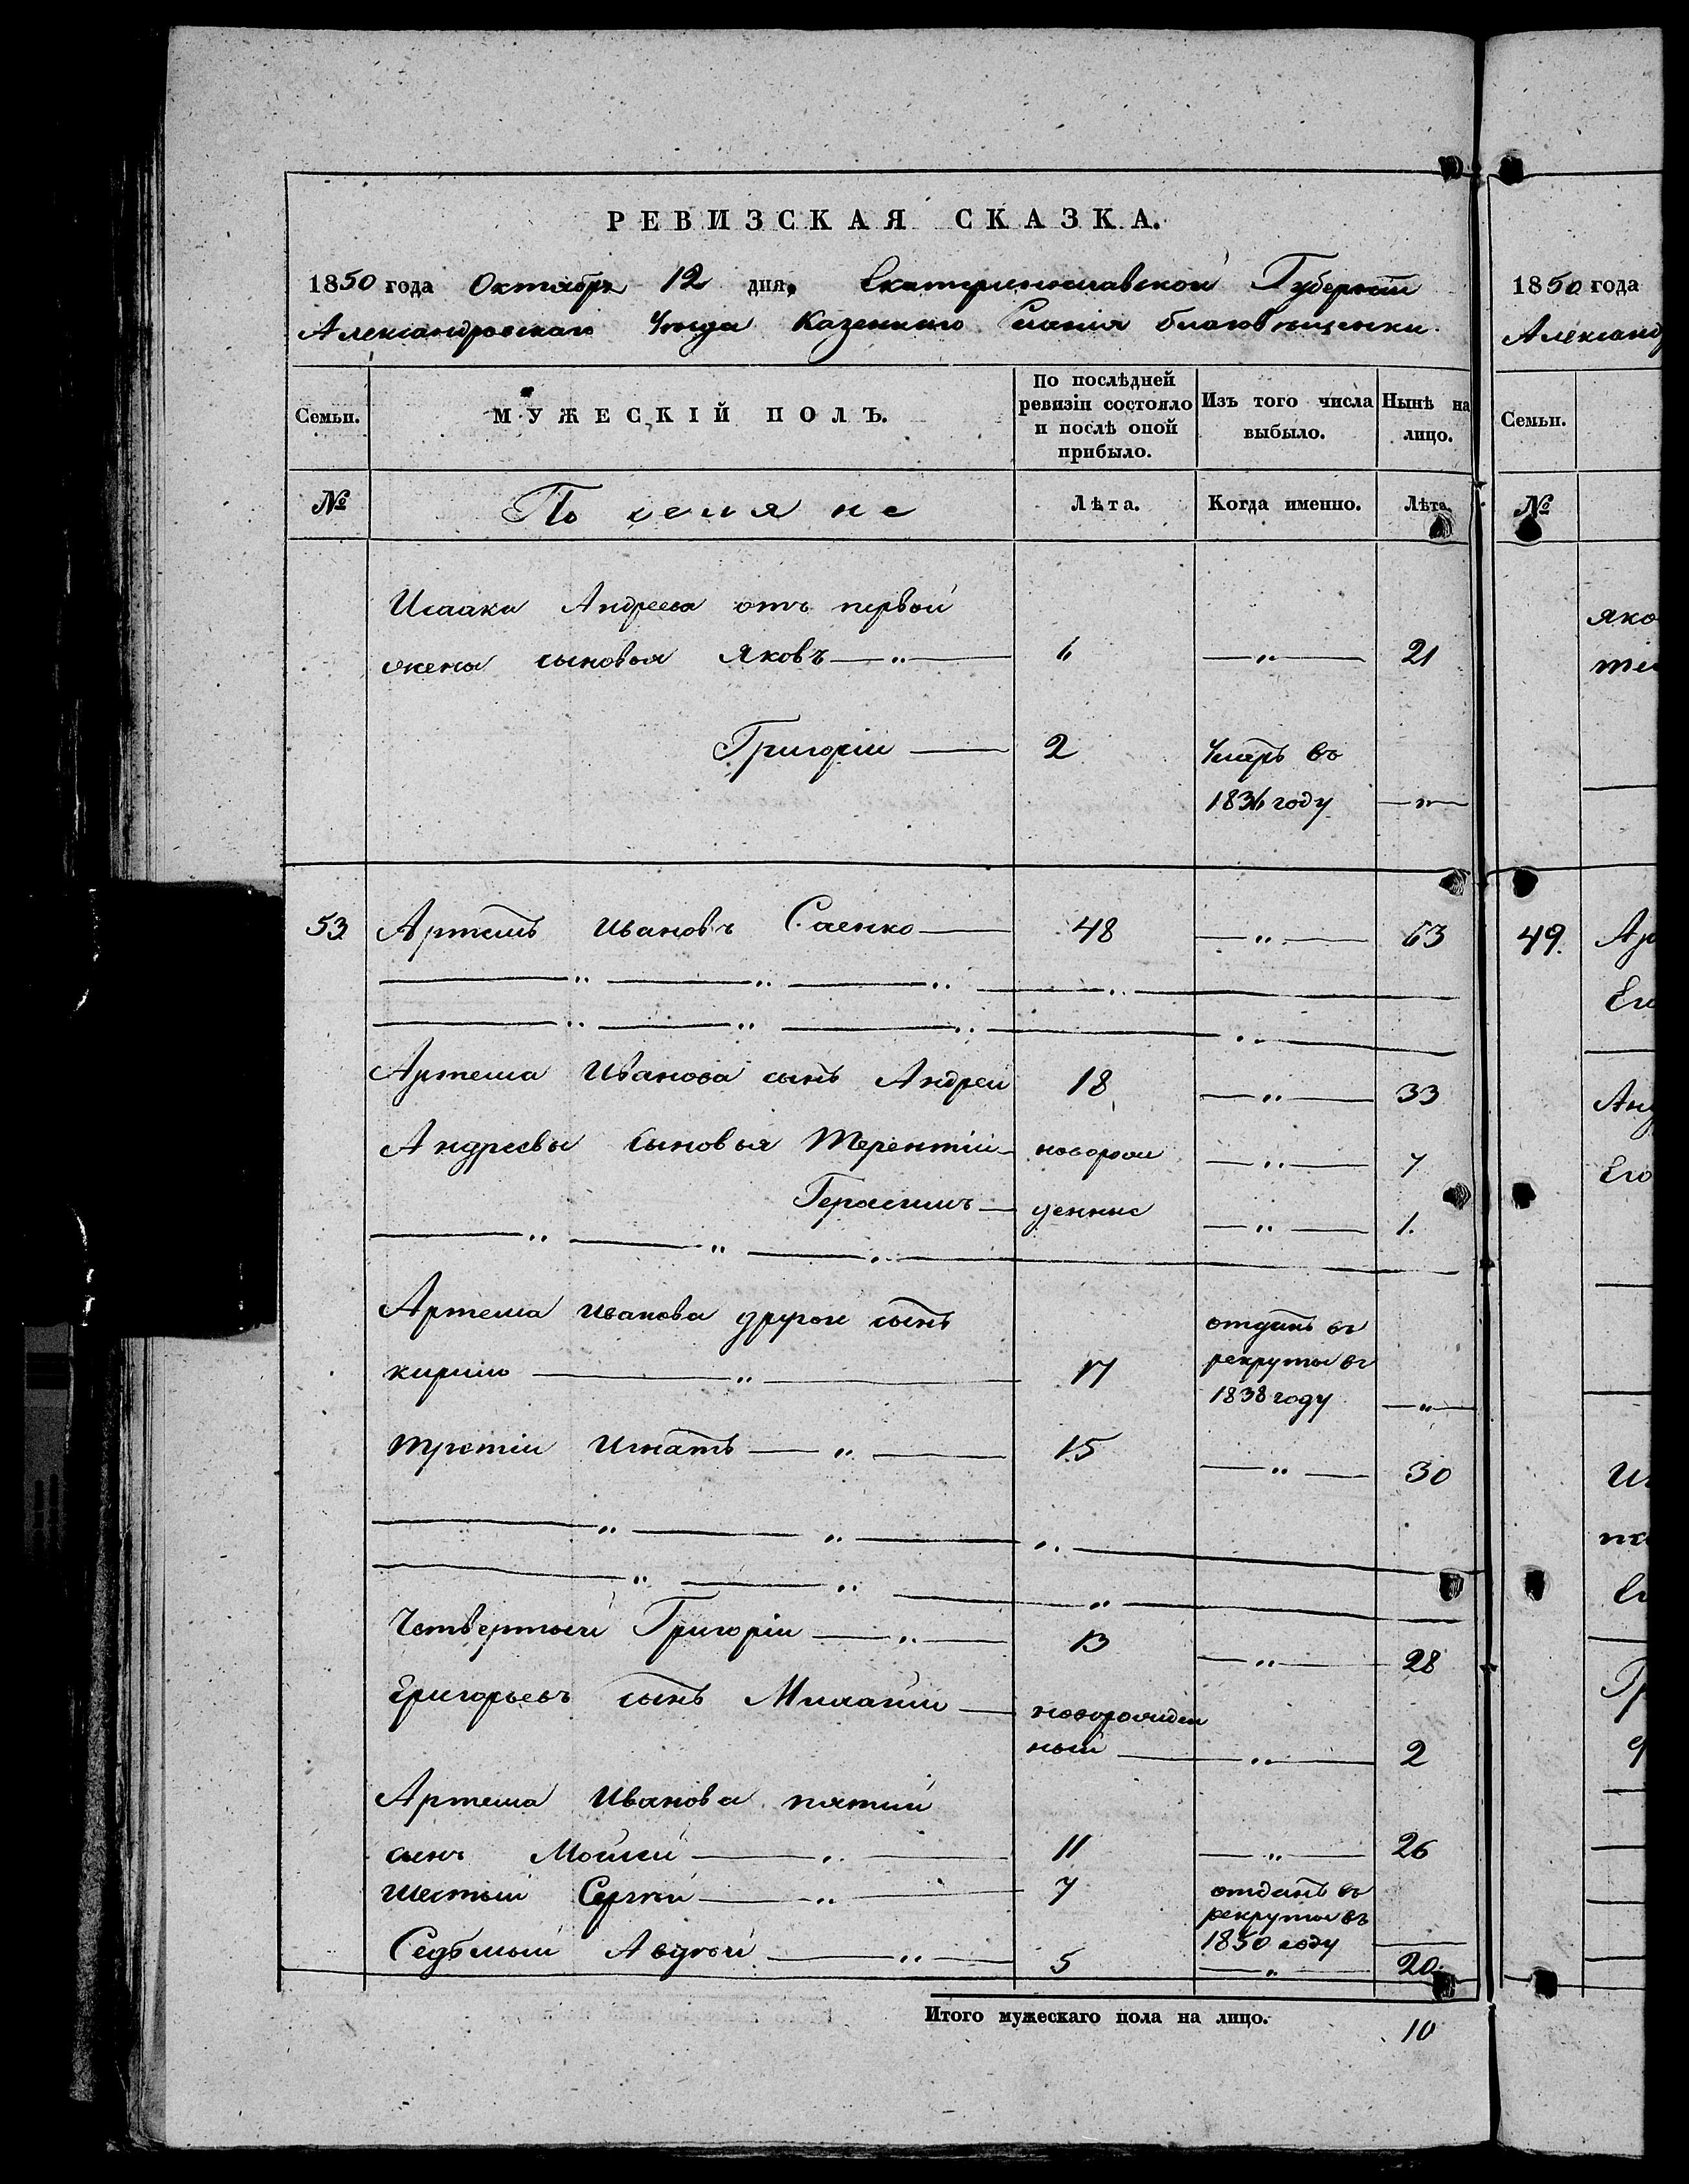 РЕВИЗСКАЯ СКАЗКА.
1850 года Октября 12 дня, Екатеринославской Губернiи
Александровскаго Уезда Казеннаго Селенiя благовещенки.
Семьи. МУЖЕСКІЙ ПОЛЪ. По послѣдней ревизіи состояло и послѣ оной прибыло. Изъ того числа выбыло. Нынѣ на лицо.
№ Поселяне Лѣта. Когда именно. Лѣта.
Исаака Андреева отъ первой
жены сыновья Яковъ — „ — 6 — „ — 21
Григорiй — 2 Умеръ въ
1836 году — „ —
53 Артемъ Ивановъ Саенко — 48 — „ — 63
Артема Иванова сынъ Андрей 18 — „ — 33
Андреевы сыновья Терентiй — новорож — „ — 7
Герасимъ — денные — „ — 1.
Артема Иванова другой сынъ отданъ въ
кирило — „ — 17 рекруты въ
1838 году — „ —
третiй Игнатъ — „ — 15 — „ — 30
Четвертый Григорiй — „ — 13 — „ — 28
Григорьевъ сынъ Михаилъ — новорожден
ный — „ — 2
Артема Иванова пятый
сынъ Мойсей — „ — 11 — „ — 26
шестый Сергѣй — „ — 7 отданъ въ
рекруты въ
1850 году —
Седьмый Авдѣй — „ — 5 — „ — 20
Итого мужескаго пола на лицо. 10
1850 года
Александ
Семьи.
№
яко
49. Ар
Его
Анд
Его